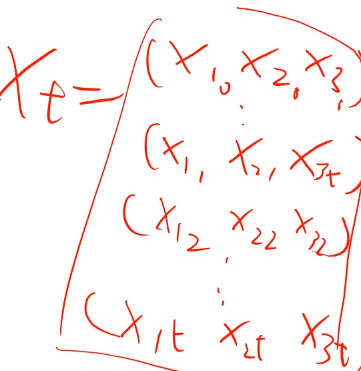 Xt = (X1, X2, X3,)
(X1, X2, X3t)
(X12 X22 X32)
(X1t X2t X3t